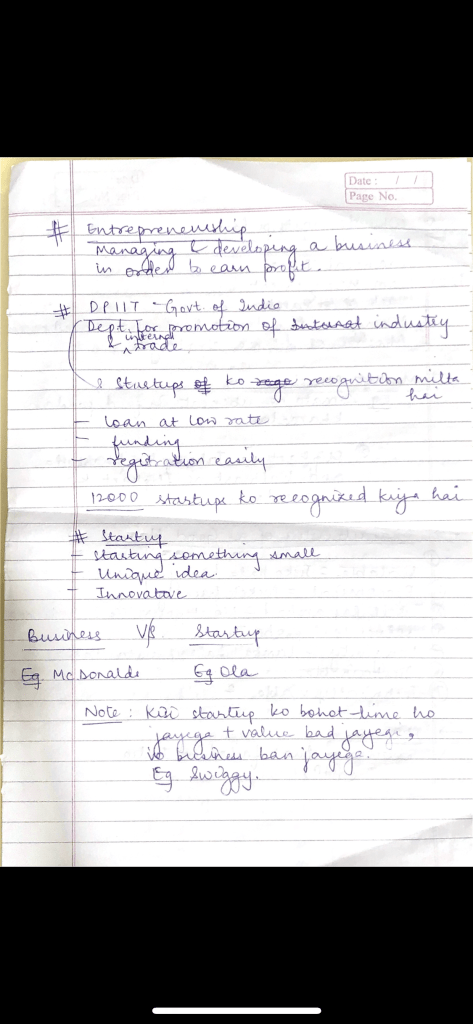 Date : / /
Page No.
# Entrepreneurship
Managing & developing a business
in order to earn profit.
# DPIIT - Govt. of India
Dept. for promotion of industry
& internal trade
& Startups ko recognition milta
hai
- loan at low rate
- funding
- registration easily
12000 startups ko recognized kiya hai
# Startup
- Starting something small
- Unique idea
- Innovative
Business V/S Startup
Eg. McDonalds Eg Ola
Note : Kisi startup ko bohot time ho
jayega + value bad jayegi,
vo business ban jayega.
Eg Swiggy.